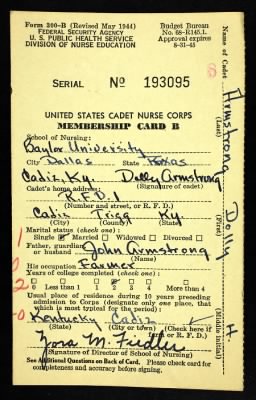 Form 300-B (Revised May 1944)
FEDERAL SECURITY AGENCY
U. S. PUBLIC HEALTH SERVICE
DIVISION OF NURSE EDUCATION
Budget Bureau
No. 68-R145.1.
Approval expires
8-31-45
SERIAL No 193095
UNITED STATES CADET NURSE CORPS
MEMBERSHIP CARD B
School of Nursing:
Baylor University
City Dallas State Texas
Cadiz, Ky. Dolly Armstrong
Cadet's home address: (Signature of cadet)
R.F.D. 1
(Number and street, or R. F. D.)
Cadiz Trigg Ky.
(City) (County) (State)
Marital status (check one):
Single Married Widowed Divorced
Father, guardian,
or husband John Armstrong
(Name)
His occupation Farmer
Years of college completed (check one):
0 Less than 1 1 2 3 4 More than 4
Usual place of residence during 10 years preceding
admission to Corps (designate only one place, that
which is most typical for the period):
Kentucky Cadiz
(State) (City or town) (Check here if
or R. F. D.)
Zora M. Fiedler
(Signature of Director of School of Nursing)
See Additional Questions on Back of Card. Please check card for
completeness and accuracy before signing.
Name of Cadet
Armstrong
(Last)
Dolly
(First)
H.
(Middle Initial)
8
1
0
2
0